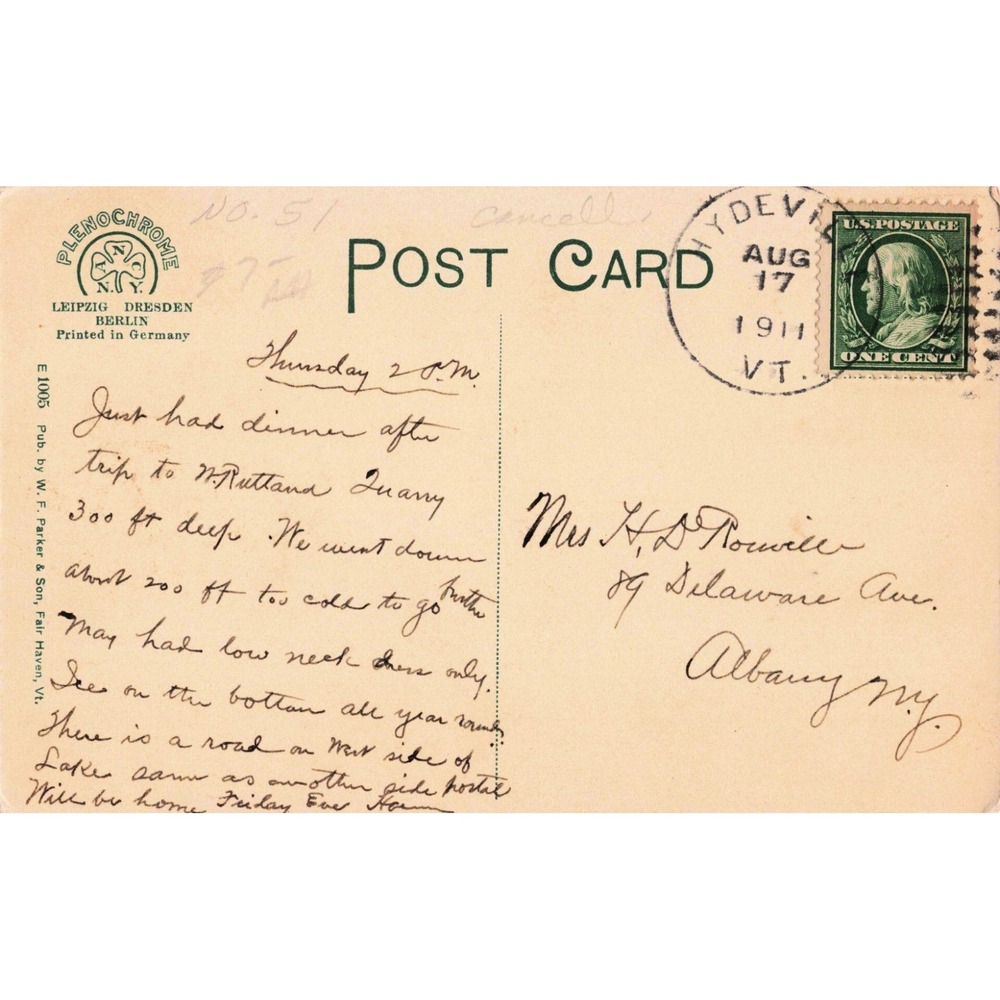 No. 51
PLENOCHROME
A N C
N.Y.
LEIPZIG DRESDEN
BERLIN
Printed in Germany
POST CARD
HYDEVILLE
AUG
17
1911
VT.
U.S. POSTAGE
ONE CENT
E 1005 Pub. by W. F. Parker & Son, Fair Haven, Vt.
Thursday 2 P.M.
Just had dinner after
trip to W. Rutland Quarry
300 ft deep. We went down
about 200 ft too cold to go further
May had low neck dress only.
Ice on the bottom all year round.
There is a road on West side of
Lake same as on other side postal
Will be home Friday Eve
Mrs H, D
89 Delaware Ave.
Albany N.Y.